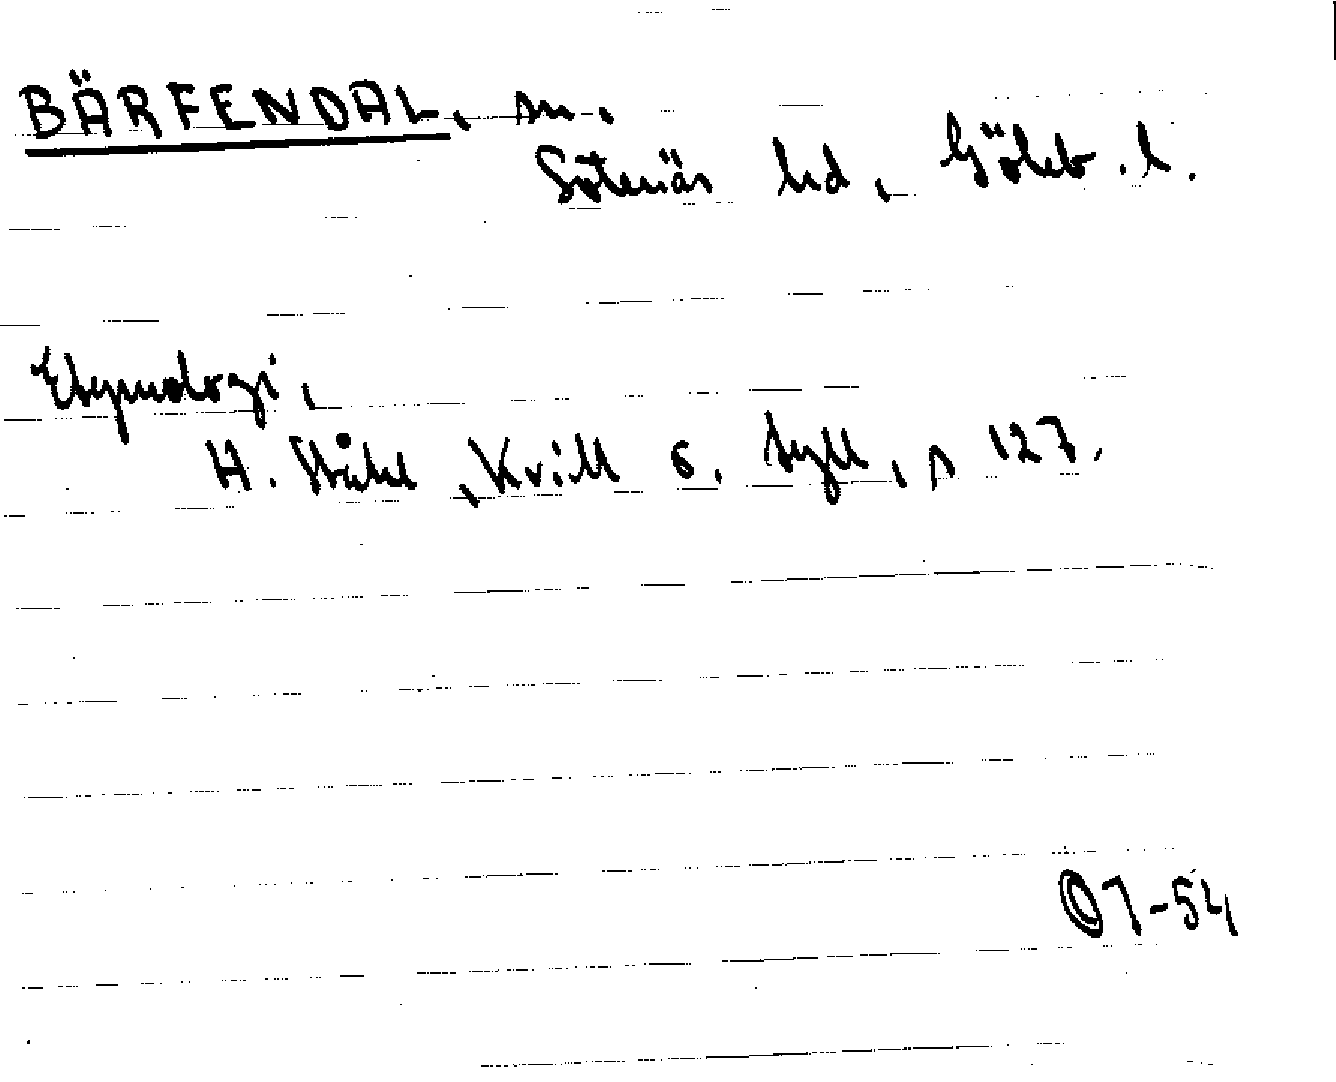 BÄRFENDAL, sn.
Sötenäs hd, Göteb. l.
Etymologi,
H. Ståhl, Kvill o. Tyll, s 127.
07-54